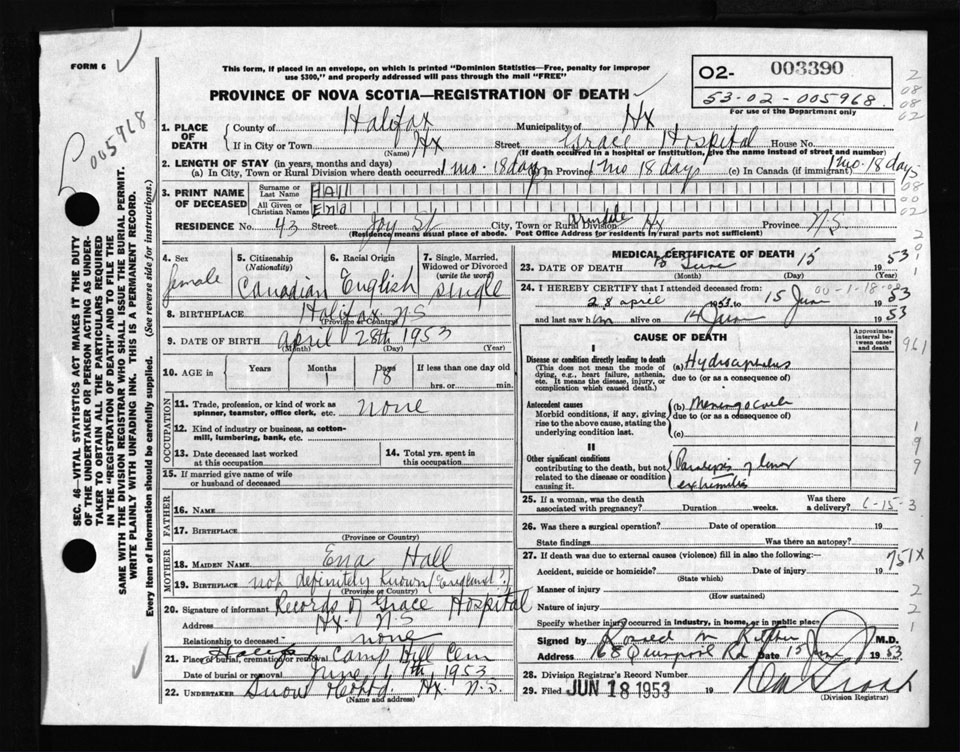 FORM 6
This form, if placed in an envelope, on which is printed "Dominion Statistics—Free, penalty for improper
use $300," and properly addressed will pass through the mail "FREE"
PROVINCE OF NOVA SCOTIA—REGISTRATION OF DEATH
02- 003390
53-02-005968
For use of the Department only
005968
SEC. 46—VITAL STATISTICS ACT MAKES IT THE DUTY
OF THE UNDERTAKER OR PERSON ACTING AS UNDER-
TAKER TO OBTAIN ALL THE PARTICULARS REQUIRED
IN THE "REGISTRATION OF DEATH" AND TO FILE THE
SAME WITH THE DIVISION REGISTRAR WHO SHALL ISSUE THE BURIAL PERMIT.
WRITE PLAINLY WITH UNFADING INK. THIS IS A PERMANENT RECORD.
Every item of information should be carefully supplied. (See reverse side for instructions.)
1. PLACE OF DEATH { County of Halifax Municipality of Hx
If in City or Town Hx Street Grace Hospital House No.
(Name) (If death occurred in a hospital or institution, give the name instead of street and number)
2. LENGTH OF STAY (in years, months and days)
(a) In City, Town or Rural Division where death occurred 1 mo. 18 days (b) In Province 1 mo 18 days (c) In Canada (if immigrant) 1 mo. 18 days
3. PRINT NAME OF DECEASED { Surname or Last Name Hall
All Given or Christian Names Ena
RESIDENCE No. 43 Street Joy St City, Town or Rural Division Armdale Hx Province N.S.
(Residence means usual place of abode. Post Office Address for residents in rural parts not sufficient)
4. Sex female
5. Citizenship (Nationality) Canadian
6. Racial Origin English
7. Single, Married, Widowed or Divorced (write the word) single
8. BIRTHPLACE Halifax N.S
(Province or Country)
9. DATE OF BIRTH April 28th 1953
(Month) (Day) (Year)
10. AGE in { Years Months 1 Days 18 If less than one day old
hrs. or min.
OCCUPATION
11. Trade, profession, or kind of work as
spinner, teamster, office clerk, etc. none
12. Kind of industry or business, as cotton-
mill, lumbering, bank, etc.
13. Date deceased last worked
at this occupation
14. Total yrs. spent in
this occupation
15. If married give name of wife
or husband of deceased
FATHER
16. Name
17. Birthplace
(Province or Country)
MOTHER
18. MAIDEN NAME Ena Hall
19. BIRTHPLACE not definitely known (England?)
(Province or Country)
20. Signature of informant Records of Grace Hospital
Address Hx. N.S
Relationship to deceased none
21. Place of burial, cremation or removal Halifax Camp Hill Cem
Date of burial or removal June 17th 1953
22. UNDERTAKER Snow Hx. N.S.
(Name and address)
MEDICAL CERTIFICATE OF DEATH
23. DATE OF DEATH June 15 1953
(Month) (Day) (Year)
24. I HEREBY CERTIFY that I attended deceased from:
28 April 1953 to 15 June 1953
and last saw him alive on 14 June 1953
CAUSE OF DEATH
Approximate interval between onset and death
I
Disease or condition directly leading to death
(This does not mean the mode of
dying, e.g., heart failure, asthenia,
etc. It means the disease, injury, or
complication which caused death.)
(a) Hydrocephalus
due to (or as a consequence of)
Antecedent causes
Morbid conditions, if any, giving
rise to the above cause, stating the
underlying condition last.
(b) Meningocoele
due to (or as a consequence of)
(c)
II
Other significant conditions
contributing to the death, but not
related to the disease or condition
causing it.
Paralysis of lower
extremities
25. If a woman, was the death
associated with pregnancy? Duration weeks. Was there a delivery?
26. Was there a surgical operation? Date of operation 19
State findings Was there an autopsy?
27. If death was due to external causes (violence) fill in also the following:—
751X
Accident, suicide or homicide? Date of injury 19
(State which)
Manner of injury
(How sustained)
Nature of injury
Specify whether injury occurred in industry, in home, or in public place
Signed by Ronald M. M.D.
Address 168 Quinpool Rd Date 15 June 1953
28. Division Registrar's Record Number
29. Filed JUN 18 1953 19
(Division Registrar)